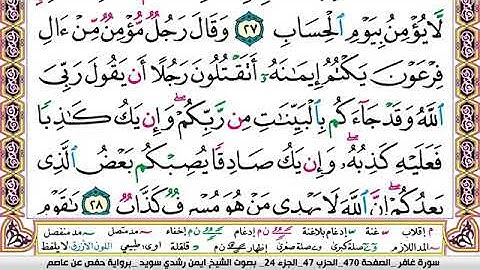 لَّا يُؤْمِنُ بِيَوْمِ ٱلْحِسَابِ ٢٧ وَقَالَ رَجُلٌ مُّؤْمِنٌ مِّنْ ءَالِ
فِرْعَوْنَ يَكْتُمُ إِيمَٰنَهُۥٓ أَتَقْتُلُونَ رَجُلًا أَن يَقُولَ رَبِّىَ
ٱللَّهُ وَقَدْ جَآءَكُم بِٱلْبَيِّنَٰتِ مِن رَّبِّكُمْ ۖ وَإِن يَكُ كَٰذِبًا
فَعَلَيْهِ كَذِبُهُۥ ۖ وَإِن يَكُ صَادِقًا يُصِبْكُم بَعْضُ ٱلَّذِى
يَعِدُكُمْ ۖ إِنَّ ٱللَّهَ لَا يَهْدِى مَنْ هُوَ مُسْرِفٌ كَذَّابٌ ٢٨ يَٰقَوْمِ
م إقلاب غنة إدغام بلاغنة إدغام إخفاء مد متصل مد منفصل
مد اللازم صلة كبرى صلة صغرى إظهار قلقلة طبيعي اللون الأزرق لا يلفظ
سورة غافر _الصفحة 470_ الحزب 47_ الجزء 24_ بصوت الشيخ ايمن رشدي سويد _برواية حفص عن عاصم